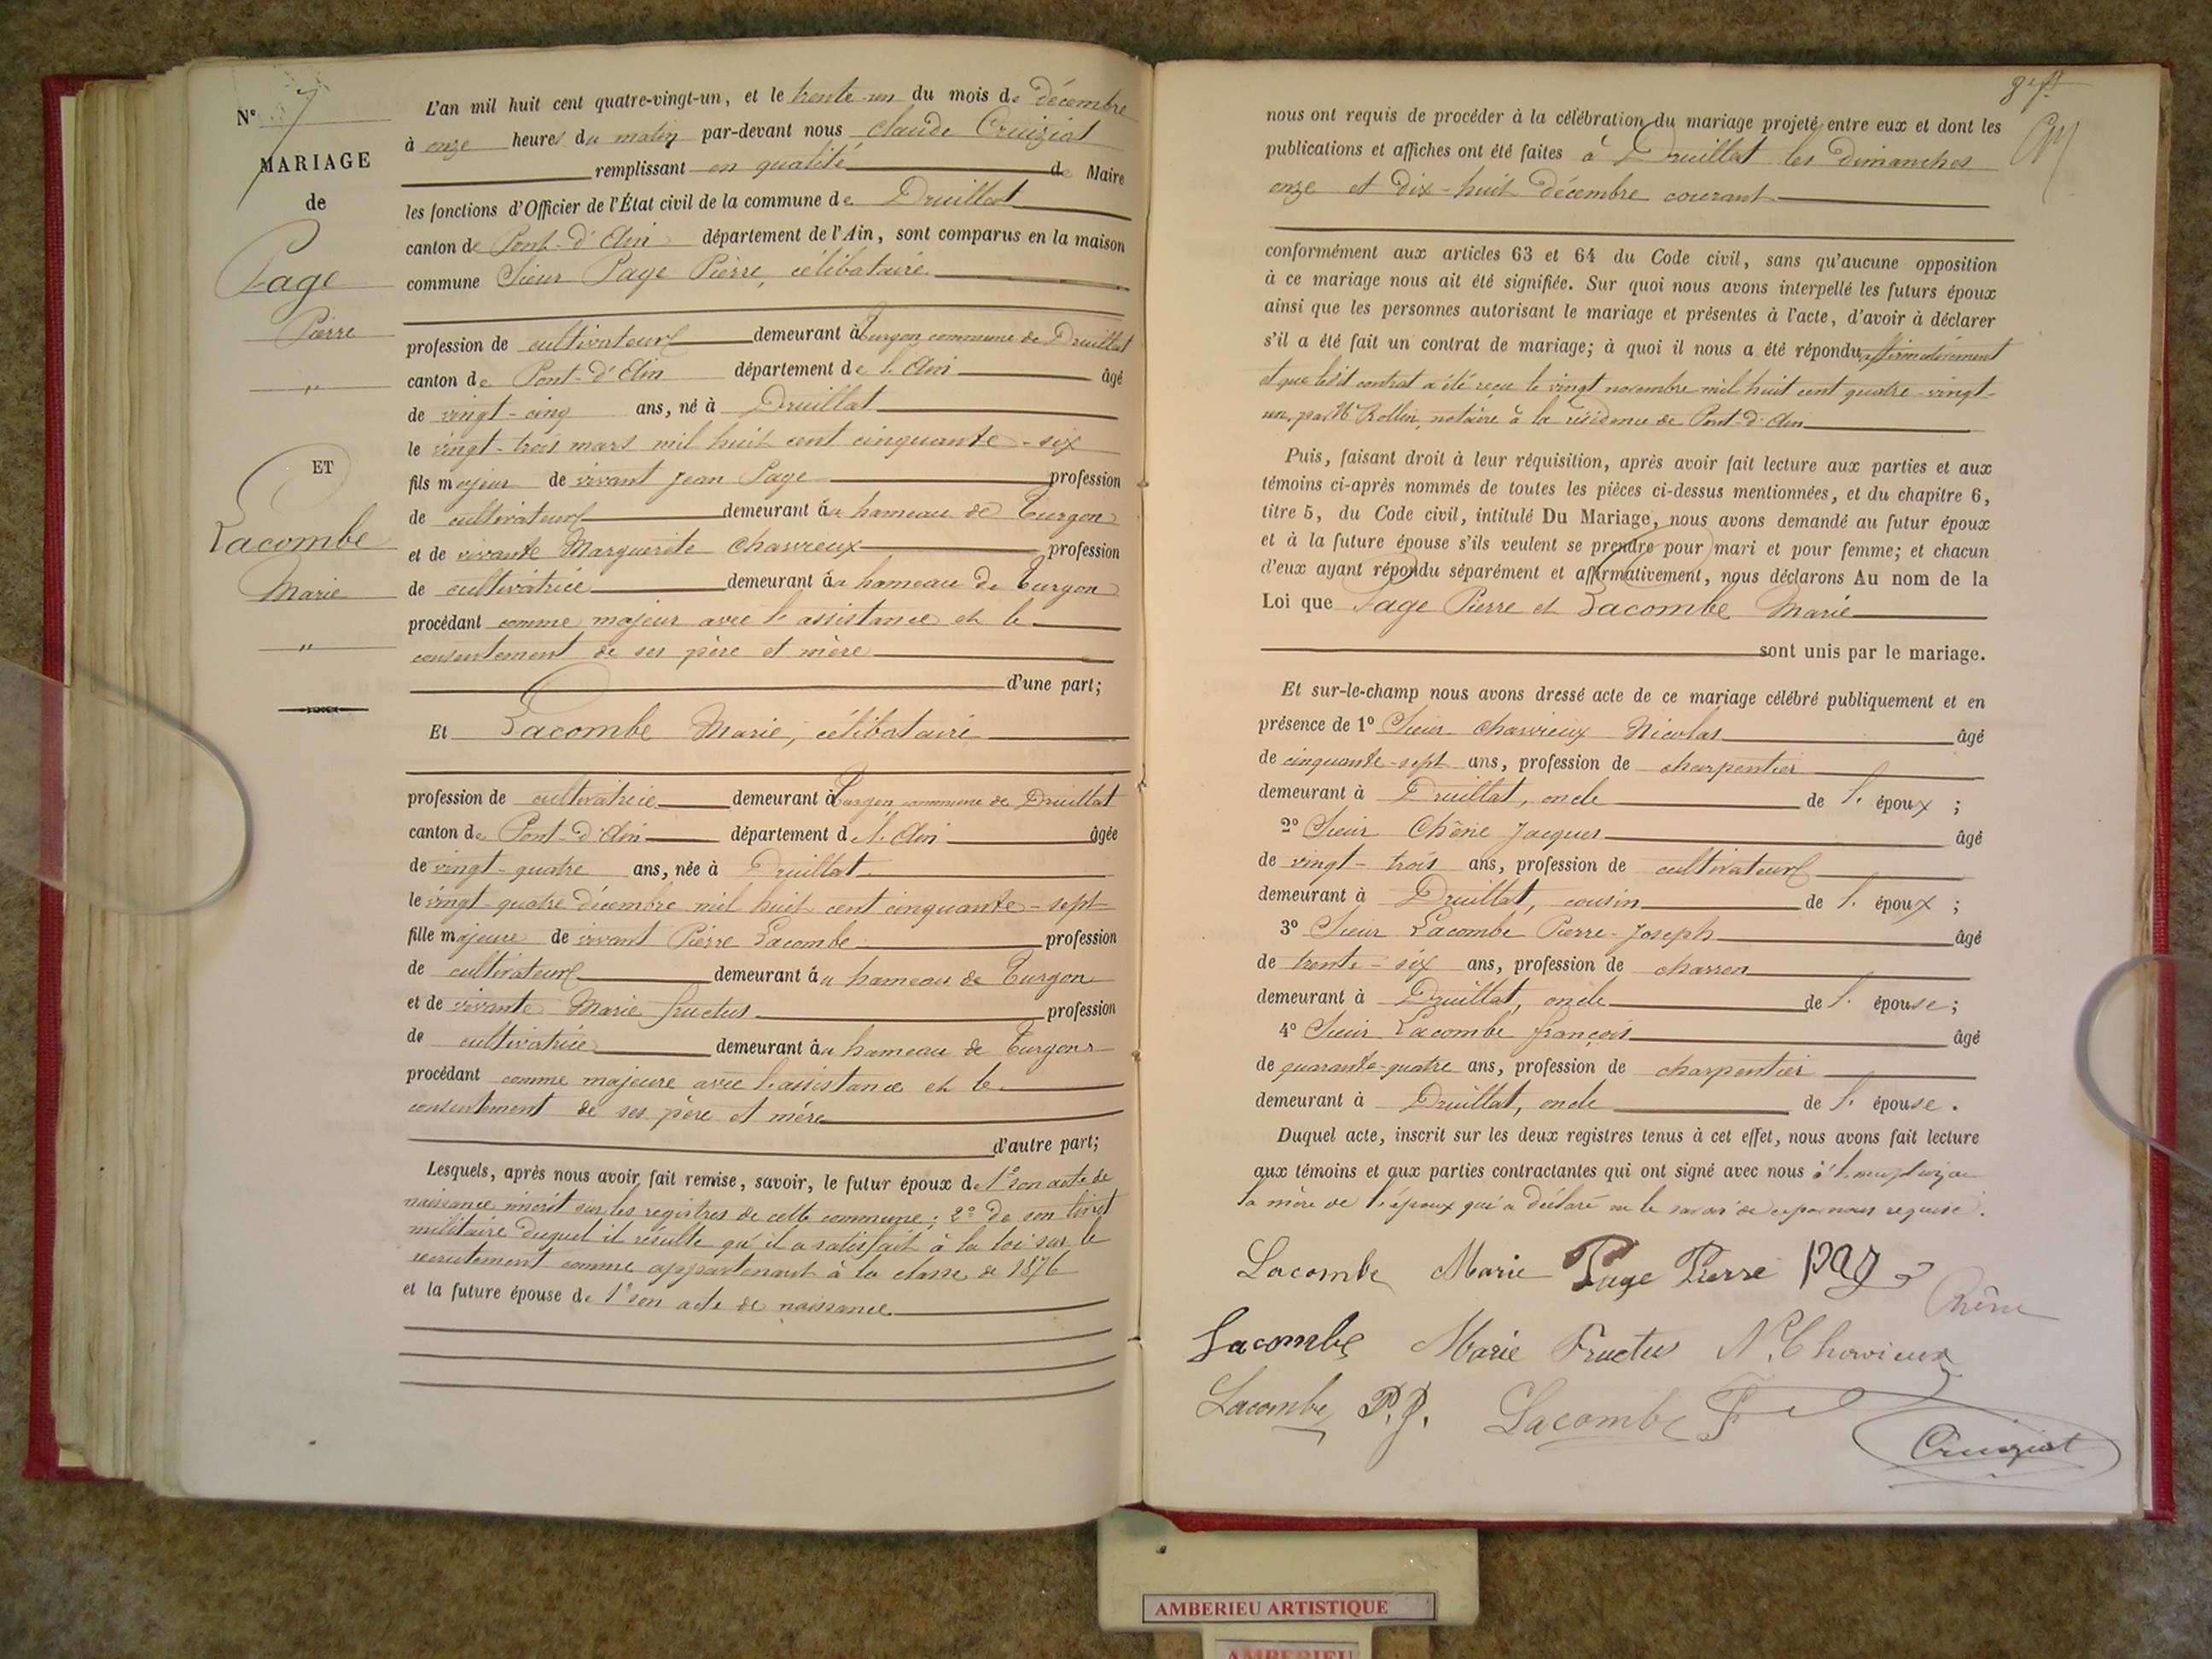 N° 7
MARIAGE
de
Page
Pierre
"
ET
Lacombe
Marie
"
L'an mil huit cent quatre-vingt-un, et le trente-un du mois de décembre
à onze heures du matin par-devant nous Claude Cruiziat
remplissant en qualité de Maire
les fonctions d'Officier de l'État civil de la commune de Druillat
canton de Pont-d'Ain département de l'Ain, sont comparus en la maison
commune Sieur Page Pierre, célibataire
profession de cultivateur demeurant à Turgon commune de Druillat
canton de Pont-d'Ain département de l'Ain âgé
de vingt-cinq ans, né à Druillat
le vingt-trois mars mil huit cent cinquante-six
fils majeur de vivant Jean Page profession
de cultivateur demeurant au hameau de Turgon
et de vivante Marguerite Charvieux profession
de cultivatrice demeurant au hameau de Turgon
procédant comme majeur avec l'assistance et le
consentement de ses père et mère
d'une part;
Et Lacombe Marie, célibataire
profession de cultivatrice demeurant à Turgon commune de Druillat
canton de Pont-d'Ain département de l'Ain âgée
de vingt-quatre ans, née à Druillat
le vingt-quatre décembre mil huit cent cinquante-sept
fille majeure de vivant Pierre Lacombe profession
de cultivateur demeurant au hameau de Turgon
et de vivante Marie Fructus profession
de cultivatrice demeurant au hameau de Turgon
procédant comme majeure avec l'assistance et le
consentement de ses père et mère
d'autre part;
Lesquels, après nous avoir fait remise, savoir, le futur époux de 1° son acte de
naissance inscrit sur les registres de cette commune; 2° de son livret
militaire duquel il résulte qu'il a satisfait à la loi sur le
recrutement comme appartenant à la classe de 1876
et la future épouse de 1° son acte de naissance
nous ont requis de procéder à la célébration du mariage projeté entre eux et dont les
publications et affiches ont été faites à Druillat les dimanches
onze et dix-huit décembre courant
conformément aux articles 63 et 64 du Code civil, sans qu'aucune opposition
à ce mariage nous ait été signifiée. Sur quoi nous avons interpellé les futurs époux
ainsi que les personnes autorisant le mariage et présentes à l'acte, d'avoir à déclarer
s'il a été fait un contrat de mariage; à quoi il nous a été répondu affirmativement
et que ledit contrat a été reçu le vingt novembre mil huit cent quatre-vingt-
un, par Me Rollin, notaire à la résidence de Pont-d'Ain
Puis, faisant droit à leur réquisition, après avoir fait lecture aux parties et aux
témoins ci-après nommés de toutes les pièces ci-dessus mentionnées, et du chapitre 6,
titre 5, du Code civil, intitulé Du Mariage, nous avons demandé au futur époux
et à la future épouse s'ils veulent se prendre pour mari et pour femme; et chacun
d'eux ayant répondu séparément et affirmativement, nous déclarons Au nom de la
Loi que Page Pierre et Lacombe Marie
sont unis par le mariage.
Et sur-le-champ nous avons dressé acte de ce mariage célébré publiquement et en
présence de 1° Sieur Charvieux Nicolas âgé
de cinquante-sept ans, profession de charpentier
demeurant à Druillat, oncle de l'époux;
2° Sieur Chêne Jacques âgé
de vingt-trois ans, profession de cultivateur
demeurant à Druillat, cousin de l'époux;
3° Sieur Lacombe Pierre-Joseph âgé
de trente-six ans, profession de charron
demeurant à Druillat, oncle de l'épouse;
4° Sieur Lacombe François âgé
de quarante-quatre ans, profession de charpentier
demeurant à Druillat, oncle de l'épouse.
Duquel acte, inscrit sur les deux registres tenus à cet effet, nous avons fait lecture
aux témoins et aux parties contractantes qui ont signé avec nous
la mère de l'époux qui a déclaré ne le savoir de ce par nous requise.
Lacombe Marie Page Pierre page
Chêne
Lacombe Marie Fructus N. Charvieux
Lacombe P.J. Lacombe F
Cruiziat
AMBERIEU ARTISTIQUE
AMBERIEU